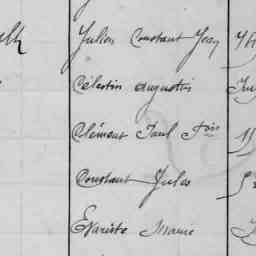 Julien Constant Jean
Célestin Augustin
Clément Paul Fois
Constant Jules
Evariste Marie